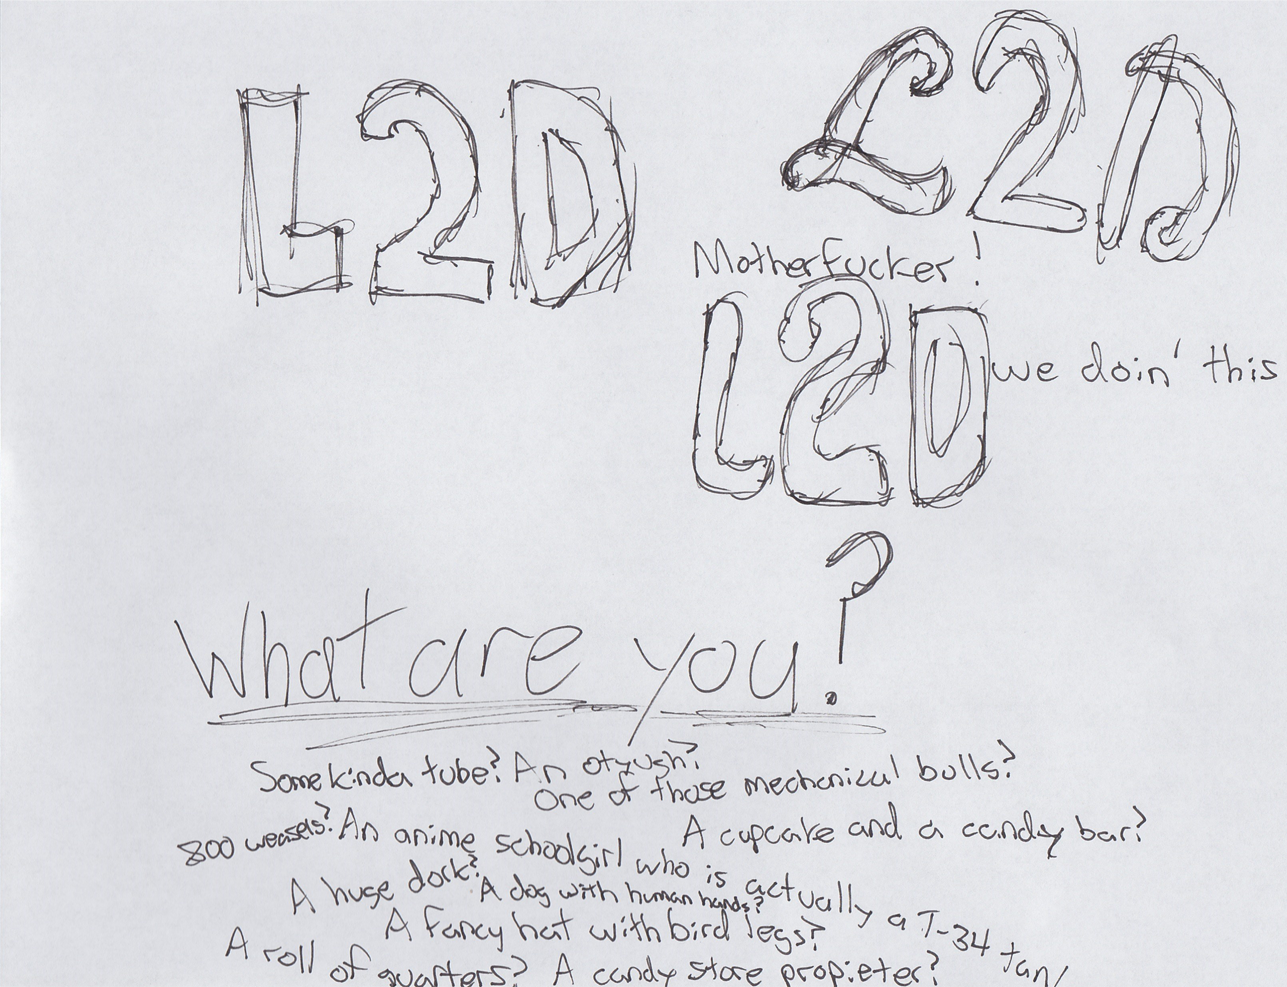 L2D
L2D
Motherfucker!
L2D we doin' this
What are you?
Some kinda tube? An otyugh?
One of those mechanical bulls?
800 weasels? An anime schoolgirl who is actually a T-34 tan
A cupcake and a candy bar?
A huge dork? A dog with human hands?
A fancy hat with bird legs?
A roll of quarters? A candy store propieter?